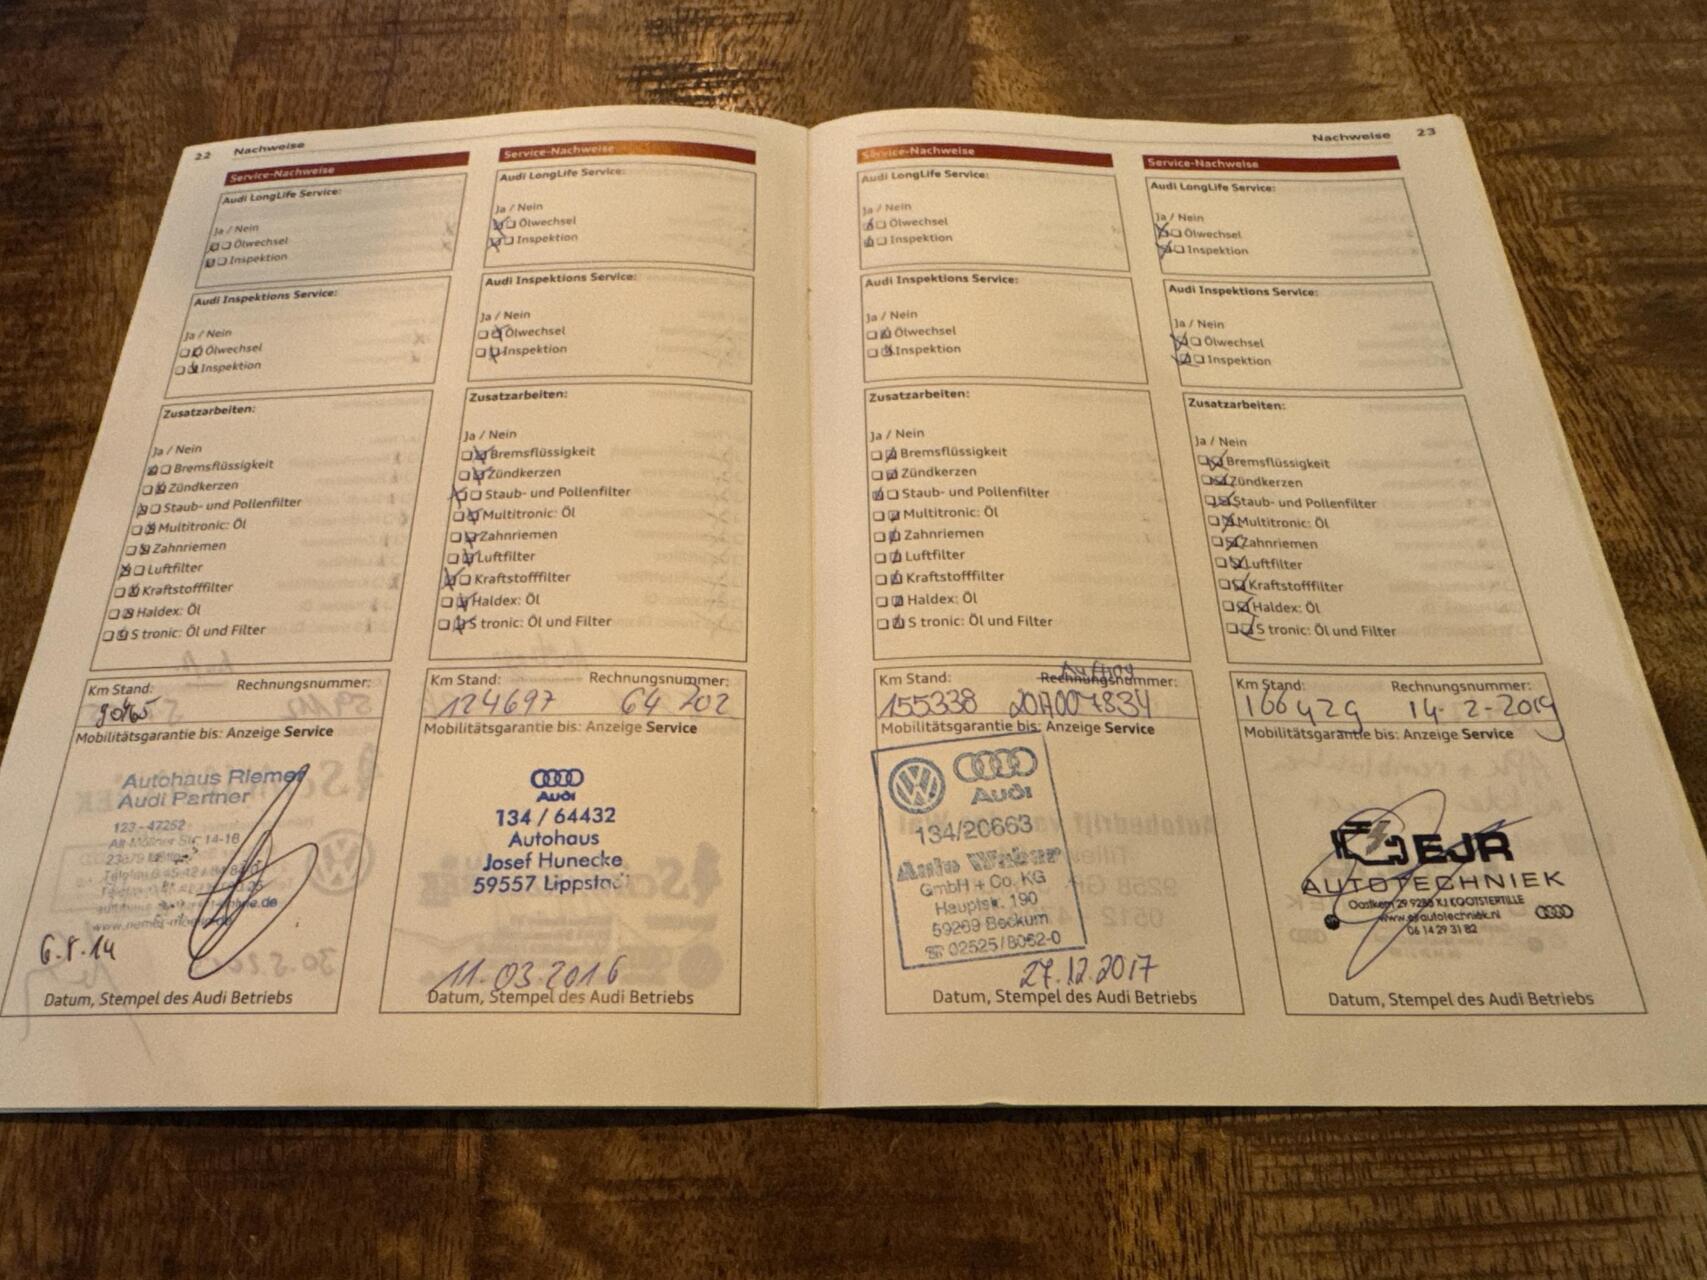 22 Nachweise
Service-Nachweise
Audi LongLife Service:
Ja / Nein
Ölwechsel
Inspektion
Audi Inspektions Service:
Ja / Nein
Ölwechsel
Inspektion
Zusatzarbeiten:
Ja / Nein
Bremsflüssigkeit
Zündkerzen
Staub- und Pollenfilter
Multitronic: Öl
Zahnriemen
Luftfilter
Kraftstofffilter
Haldex: Öl
S tronic: Öl und Filter
Km Stand: Rechnungsnummer:
90165
Mobilitätsgarantie bis: Anzeige Service
Autohaus Riemer
Audi Partner
123-47252
Alt-Möllner Str. 14-16
6.8.14
Datum, Stempel des Audi Betriebs
Service-Nachweise
Audi LongLife Service:
Ja / Nein
Ölwechsel
Inspektion
Audi Inspektions Service:
Ja / Nein
Ölwechsel
Inspektion
Zusatzarbeiten:
Ja / Nein
Bremsflüssigkeit
Zündkerzen
Staub- und Pollenfilter
Multitronic: Öl
Zahnriemen
Luftfilter
Kraftstofffilter
Haldex: Öl
S tronic: Öl und Filter
Km Stand: Rechnungsnummer:
124697 64 202
Mobilitätsgarantie bis: Anzeige Service
Audi
134 / 64432
Autohaus
Josef Hunecke
59557 Lippstadt
11.03.2016
Datum, Stempel des Audi Betriebs
Nachweise 23
Service-Nachweise
Audi LongLife Service:
Ja / Nein
Ölwechsel
Inspektion
Audi Inspektions Service:
Ja / Nein
Ölwechsel
Inspektion
Zusatzarbeiten:
Ja / Nein
Bremsflüssigkeit
Zündkerzen
Staub- und Pollenfilter
Multitronic: Öl
Zahnriemen
Luftfilter
Kraftstofffilter
Haldex: Öl
S tronic: Öl und Filter
Auftrag
Km Stand: Rechnungsnummer:
155338 20A007834
Mobilitätsgarantie bis: Anzeige Service
Audi
134/20663
Auto Weber
GmbH + Co. KG
Hauptstr. 190
59269 Beckum
02525/8062-0
27.12.2017
Datum, Stempel des Audi Betriebs
Service-Nachweise
Audi LongLife Service:
Ja / Nein
Ölwechsel
Inspektion
Audi Inspektions Service:
Ja / Nein
Ölwechsel
Inspektion
Zusatzarbeiten:
Ja / Nein
Bremsflüssigkeit
Zündkerzen
Staub- und Pollenfilter
Multitronic: Öl
Zahnriemen
Luftfilter
Kraftstofffilter
Haldex: Öl
S tronic: Öl und Filter
Km Stand: Rechnungsnummer:
166429 14-2-2019
Mobilitätsgarantie bis: Anzeige Service
EJR
AUTOTECHNIEK
Oostkern 29 9288 XJ KOOTSTERTILLE
www.ejrautotechniek.nl
06 14 29 31 82
Datum, Stempel des Audi Betriebs